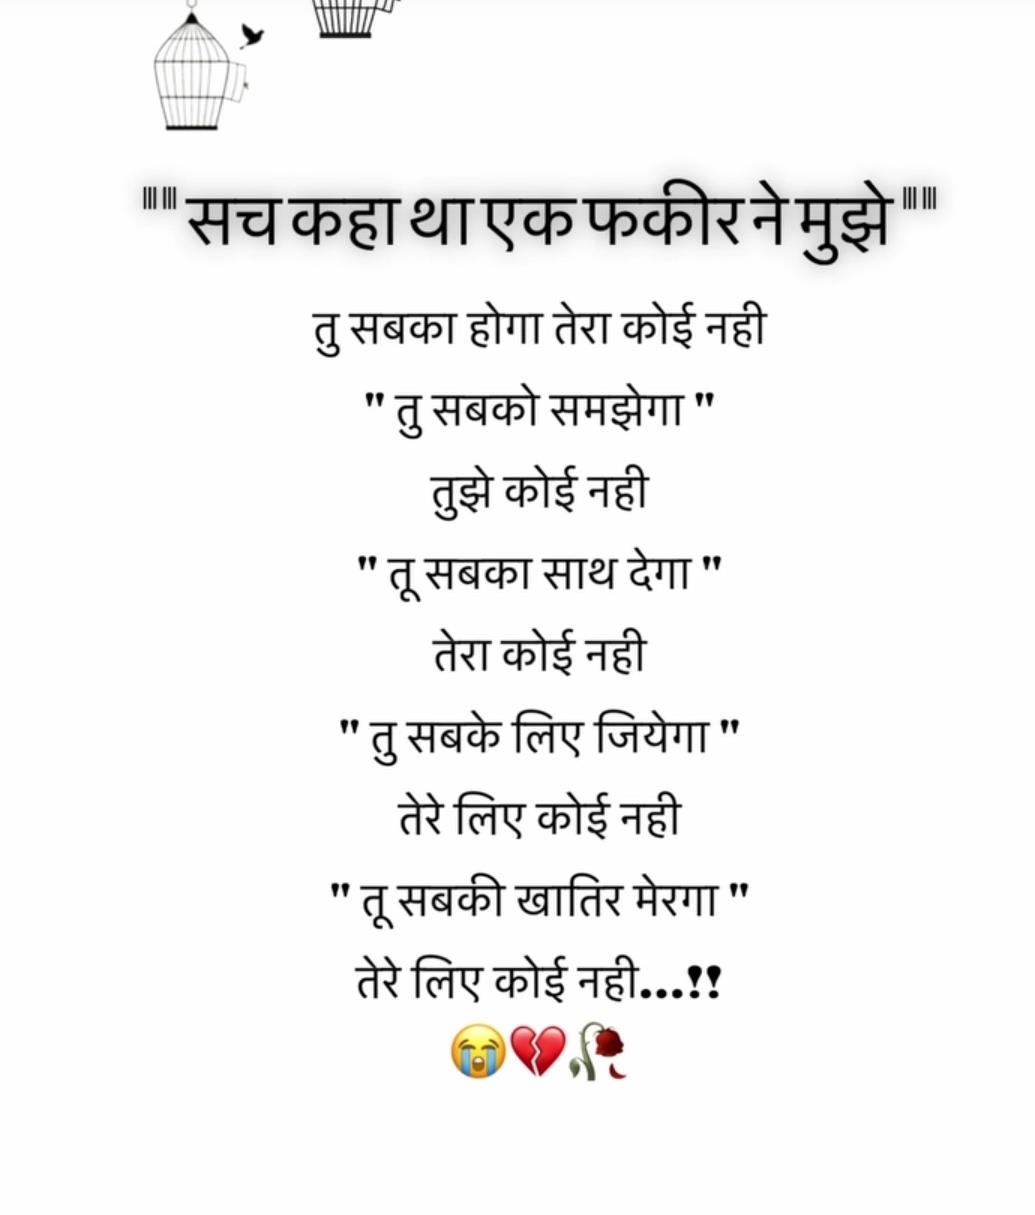 """ सच कहा था एक फकीर ने मुझे """
तु सबका होगा तेरा कोई नही
" तु सबको समझेगा "
तुझे कोई नही
" तू सबका साथ देगा "
तेरा कोई नही
" तु सबके लिए जियेगा "
तेरे लिए कोई नही
" तू सबकी खातिर मेरगा "
तेरे लिए कोई नही...!!
😭💔🥀